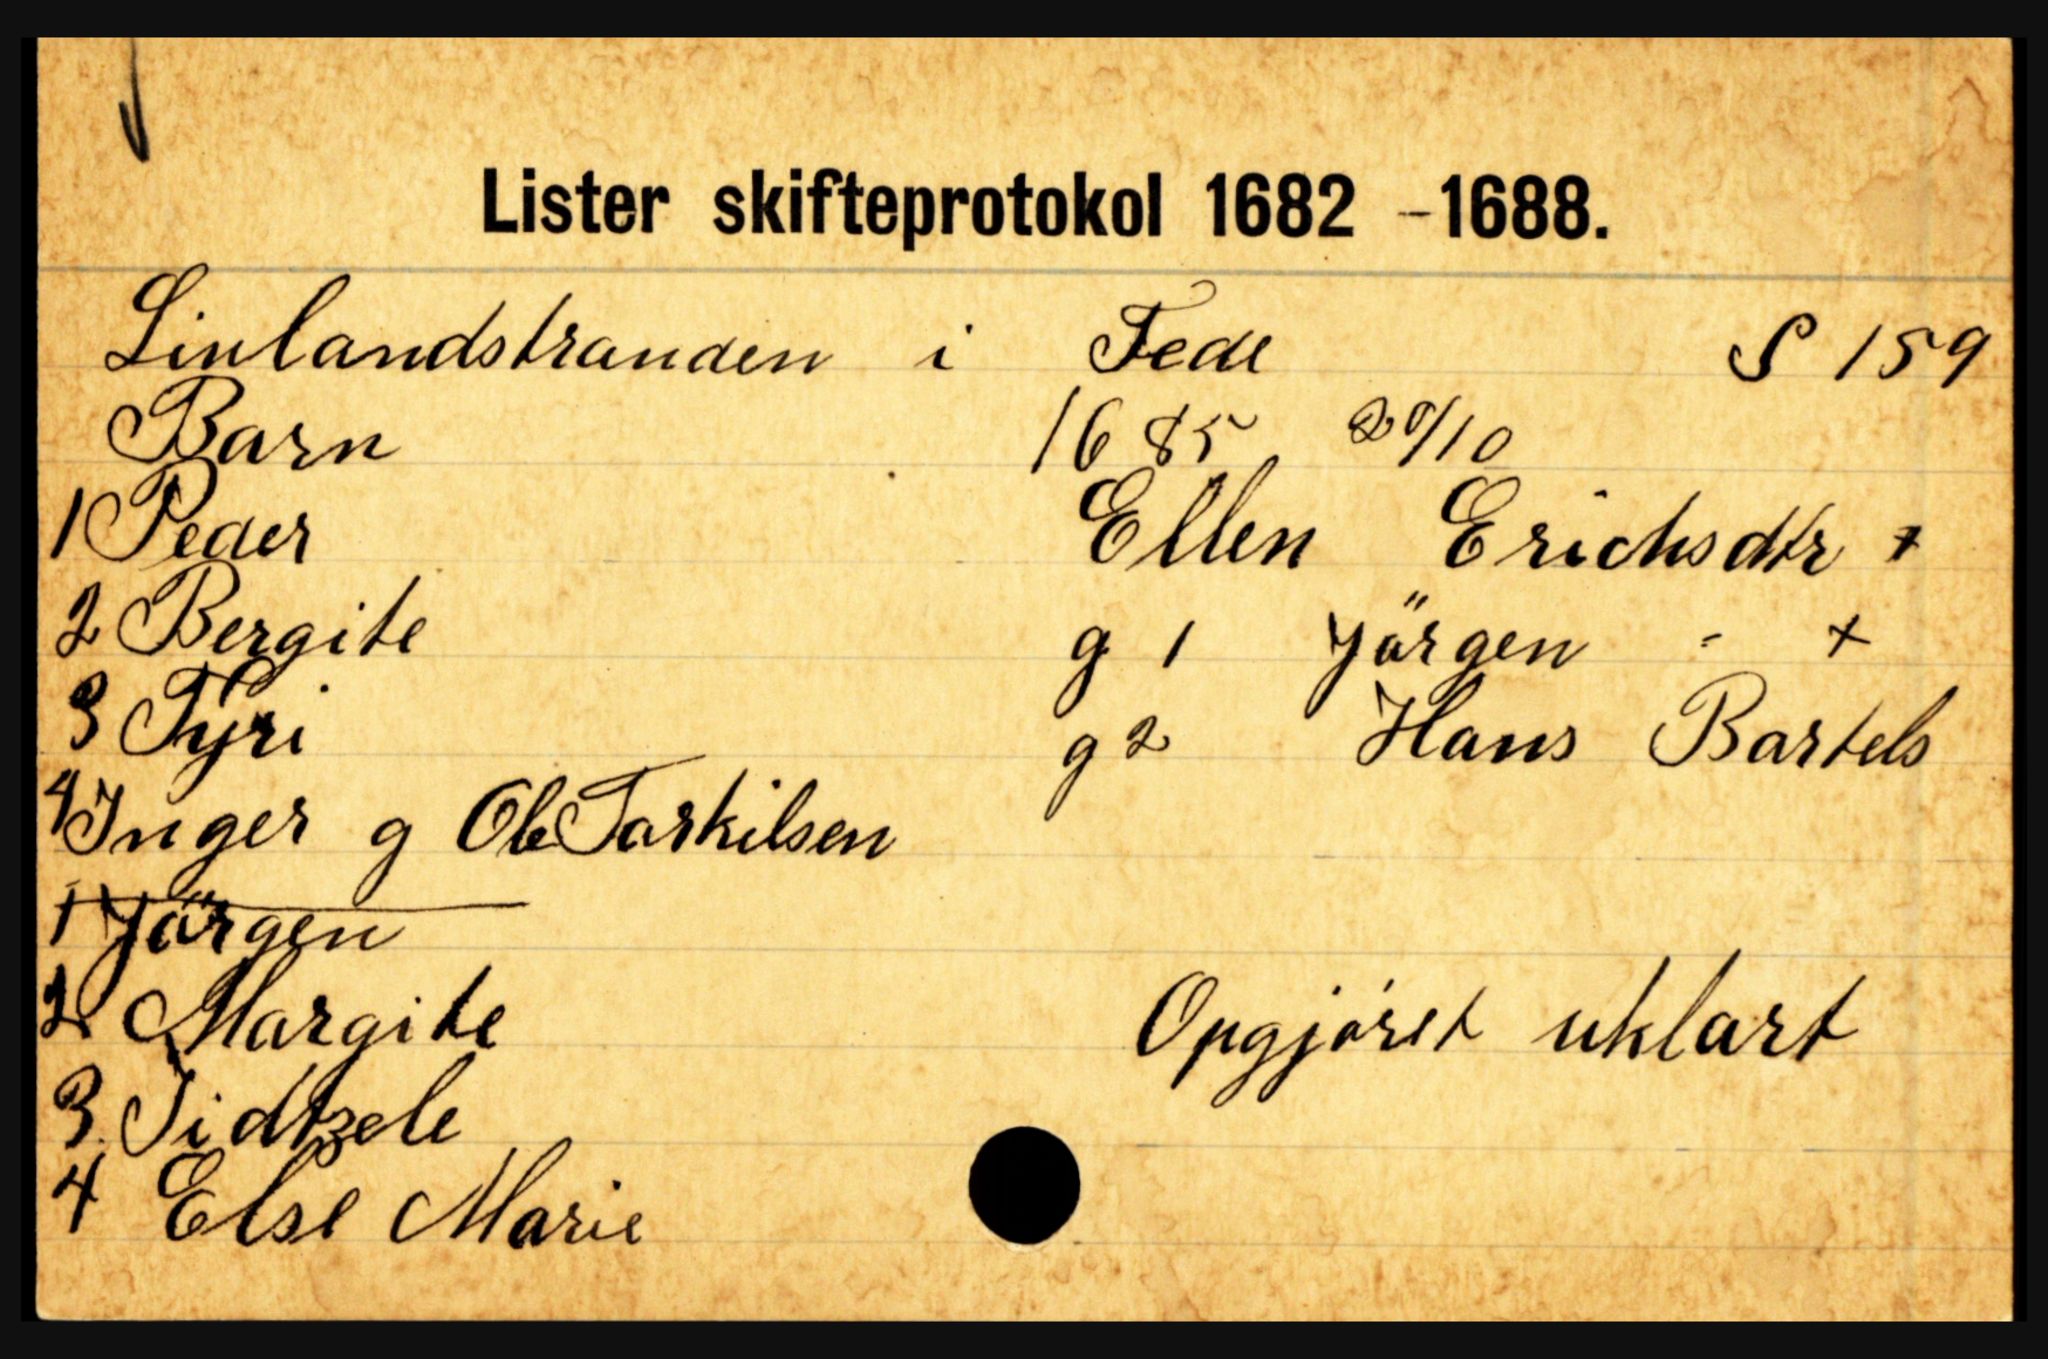 Lister skifteprotokol 1682 - 1688.
Linlandstranden i Fede S 159
Barn 1685 20/10
1 Peder Ellen Erichsdtr +
2 Bergite g 1 Jörgen - +
3 Tyri g 2 Hans Bartels
4 Inger g Ole Torkilsen
1 Jörgen
2 Margite Opgjöret uklart
3. Sidtzele
4 Else Marie